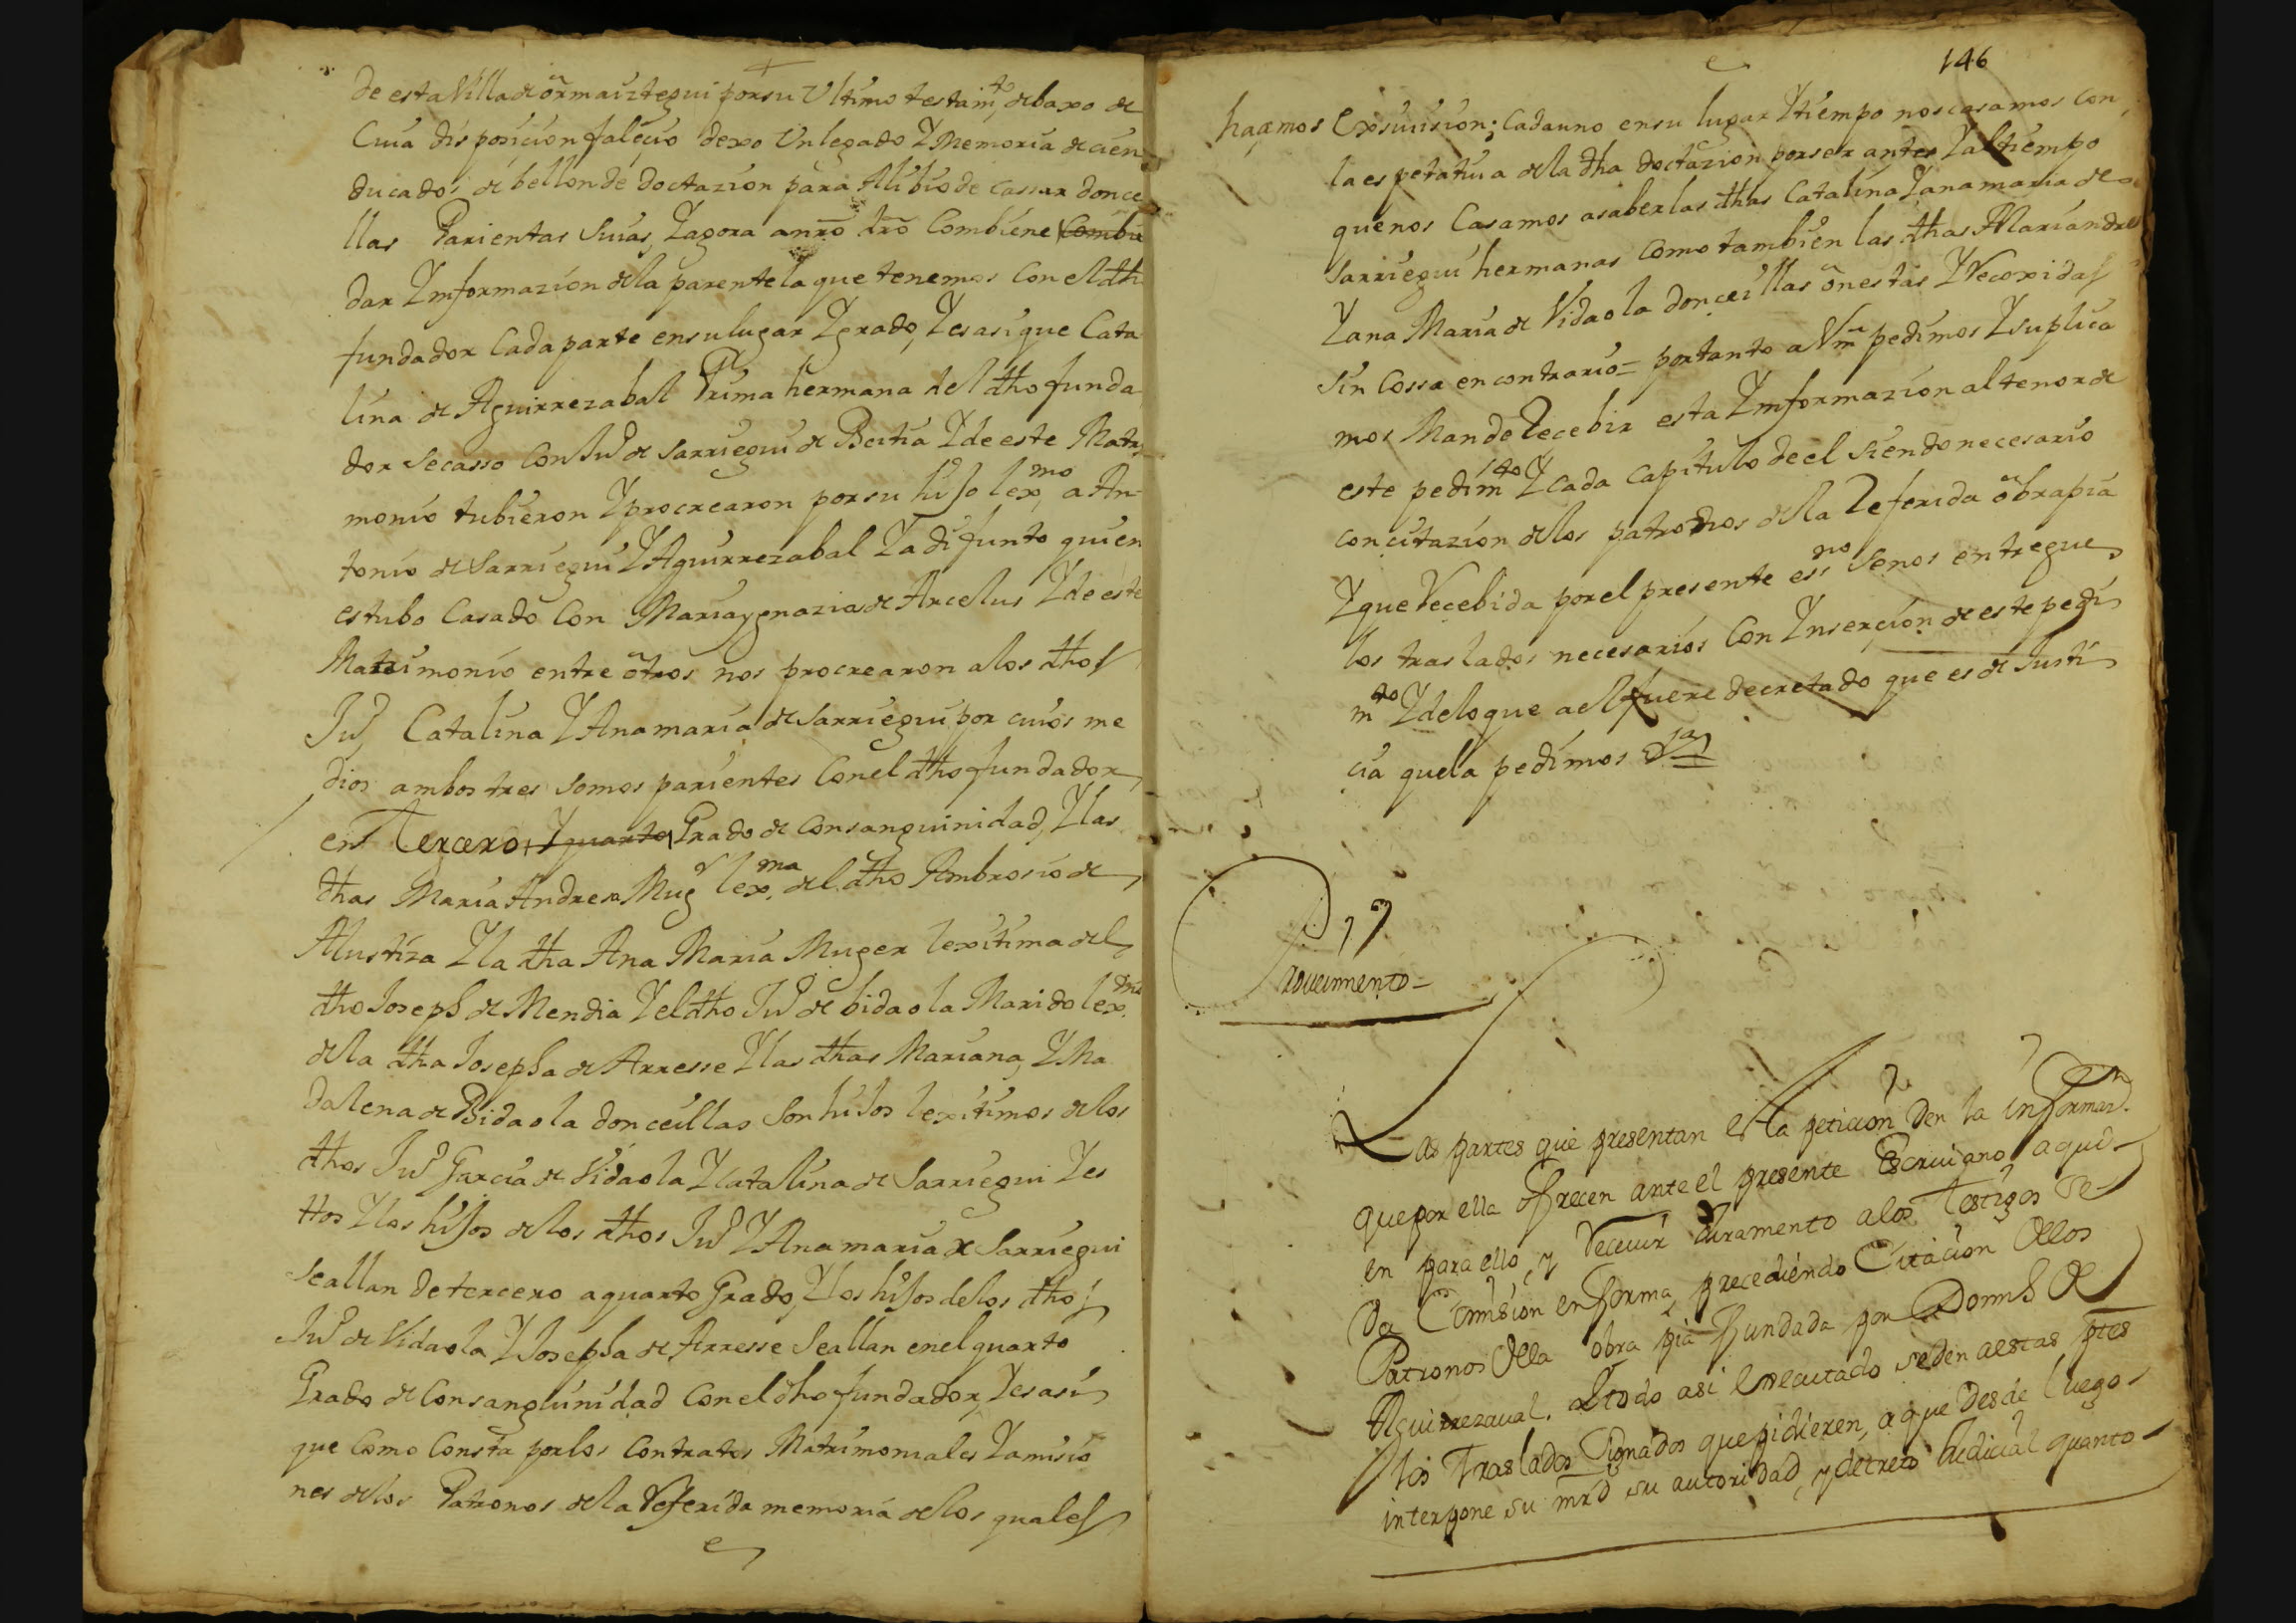 de esta Villa de ôrmaiztegui por su Ultimo testam.to debaxo de
Cuia disposicion falecio dexo Un legado Y Memoria de cien
ducados de bellon de doctazion para Alibio de cassar donce
llas Parientas Suias, Y agora a nr̃o dr̃o Combiene Combie
dar Ynformazion de la parentela que tenemos con el dho
fundador Cada parte en su lugar Y grado, Y es asi que Cata
lina de Aguirrezabal Prima hermana del dho funda
dor Se casso con Ju.o de Sarriegui de Beitia Y de este Matri
monio tubieron Y procrearon por su hiJo lex.mo a An
tonio de Sarriegui Y Aguirrezabal Ya difunto quien
estubo Casado Con Maria ygnazia de Arcelus Y de este
Matrimonio entre ôtros nos procrearon a los dhos
Ju.o Catalina Y Anamaria de Sarriegui por cuios me
dios ambos tres somos parientes Con el dho fundador
en Tercero Y quarto Grado de Consanguinidad, Y las
dhas Maria Andresa Mug.r lex.ma del dho Ambrosio de
Alustiza Y la dha Ana Maria Muger lexitima del
dho Joseph de Mendia Y el dho Ju.o de bidaola Marido lex.mo
de la dha Josepha de Arresse Y las dhas Mariana, Y Ma
dalena de Bidaola doncellas Son hiJos lexitimos de los
dhos Ju.o Garcia de Vidaola Y Catalina de Sarriegui Y es
tos Y los hiJos de los dhos Ju.o Y Anamaria de Sarriegui
se allan de tercero a quarto Grado, Y los hiJos de los dhos
Ju.o de Vidaola Y Josepha de Arresse Se allan en el quarto
Grado de Consanguinidad con el dho fundador, Y es asi
que como Consta por los Contratos Matrimoniales Y amisio
nes de los Patronos de la Referida memoria de los quales
146
haçemos Exsiuision; Cada uno en su lugar Y tiempo nos casamos con
la espetatiua de la dha doctazion por ser antes Y al tiempo
que nos Casamos a saber las dhas Catalina Y anamaria de
Sarriegui hermanas como tambien las dhas Mariandres
Y ana Maria de Vidaola donçeillas ônestas Y Recoxidas
Sin Cossa en contrario = por tanto a Vm pedimos Y suplica
mos Mande Recebir esta Ynformazion al tenor de
este pedim.to Y cada Capitulo de el siendo necesario
con citazion de los patronos de la Referida ôbrapia
Y que Recebida por el presente ess.no Se nos entregue
los traslados necesarios Con Ynserçion de este pedi
m.to Y de lo que a el fuere decretado que es de Justi
cia que la pedimos
Proueimiento =
Las partes que presentan esta peticion Den la informaz.on
que por ella ofrecen ante el presente Escriuano, a qui
en para ello, y Receuir Juramento a los Testigos Se
Da Comision en forma, precediendo Citacion de los
Patronos de la obra pia fundada por Domin.o de
Aguirrezaual. Y todo asi Executado se den a estas ptes
los Traslados Signados que pidieren, a que desde luego
interpone su mrd su autoridad, y decreto Judicial quanto